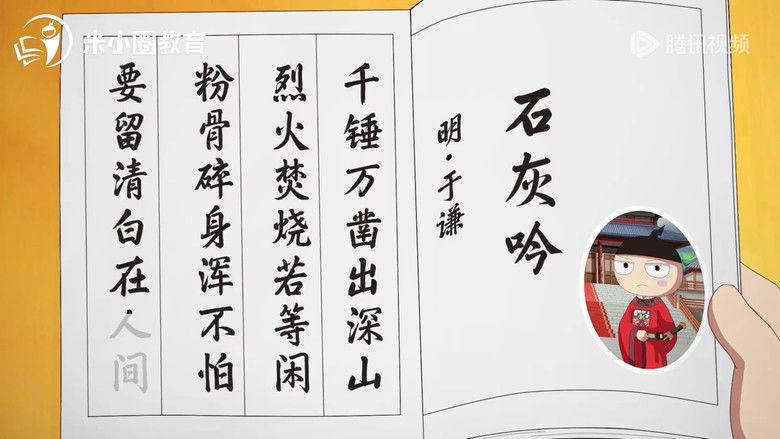 米小圈教育
腾讯视频
石灰吟
明·于谦
千锤万凿出深山
烈火焚烧若等闲
粉骨碎身浑不怕
要留清白在人间